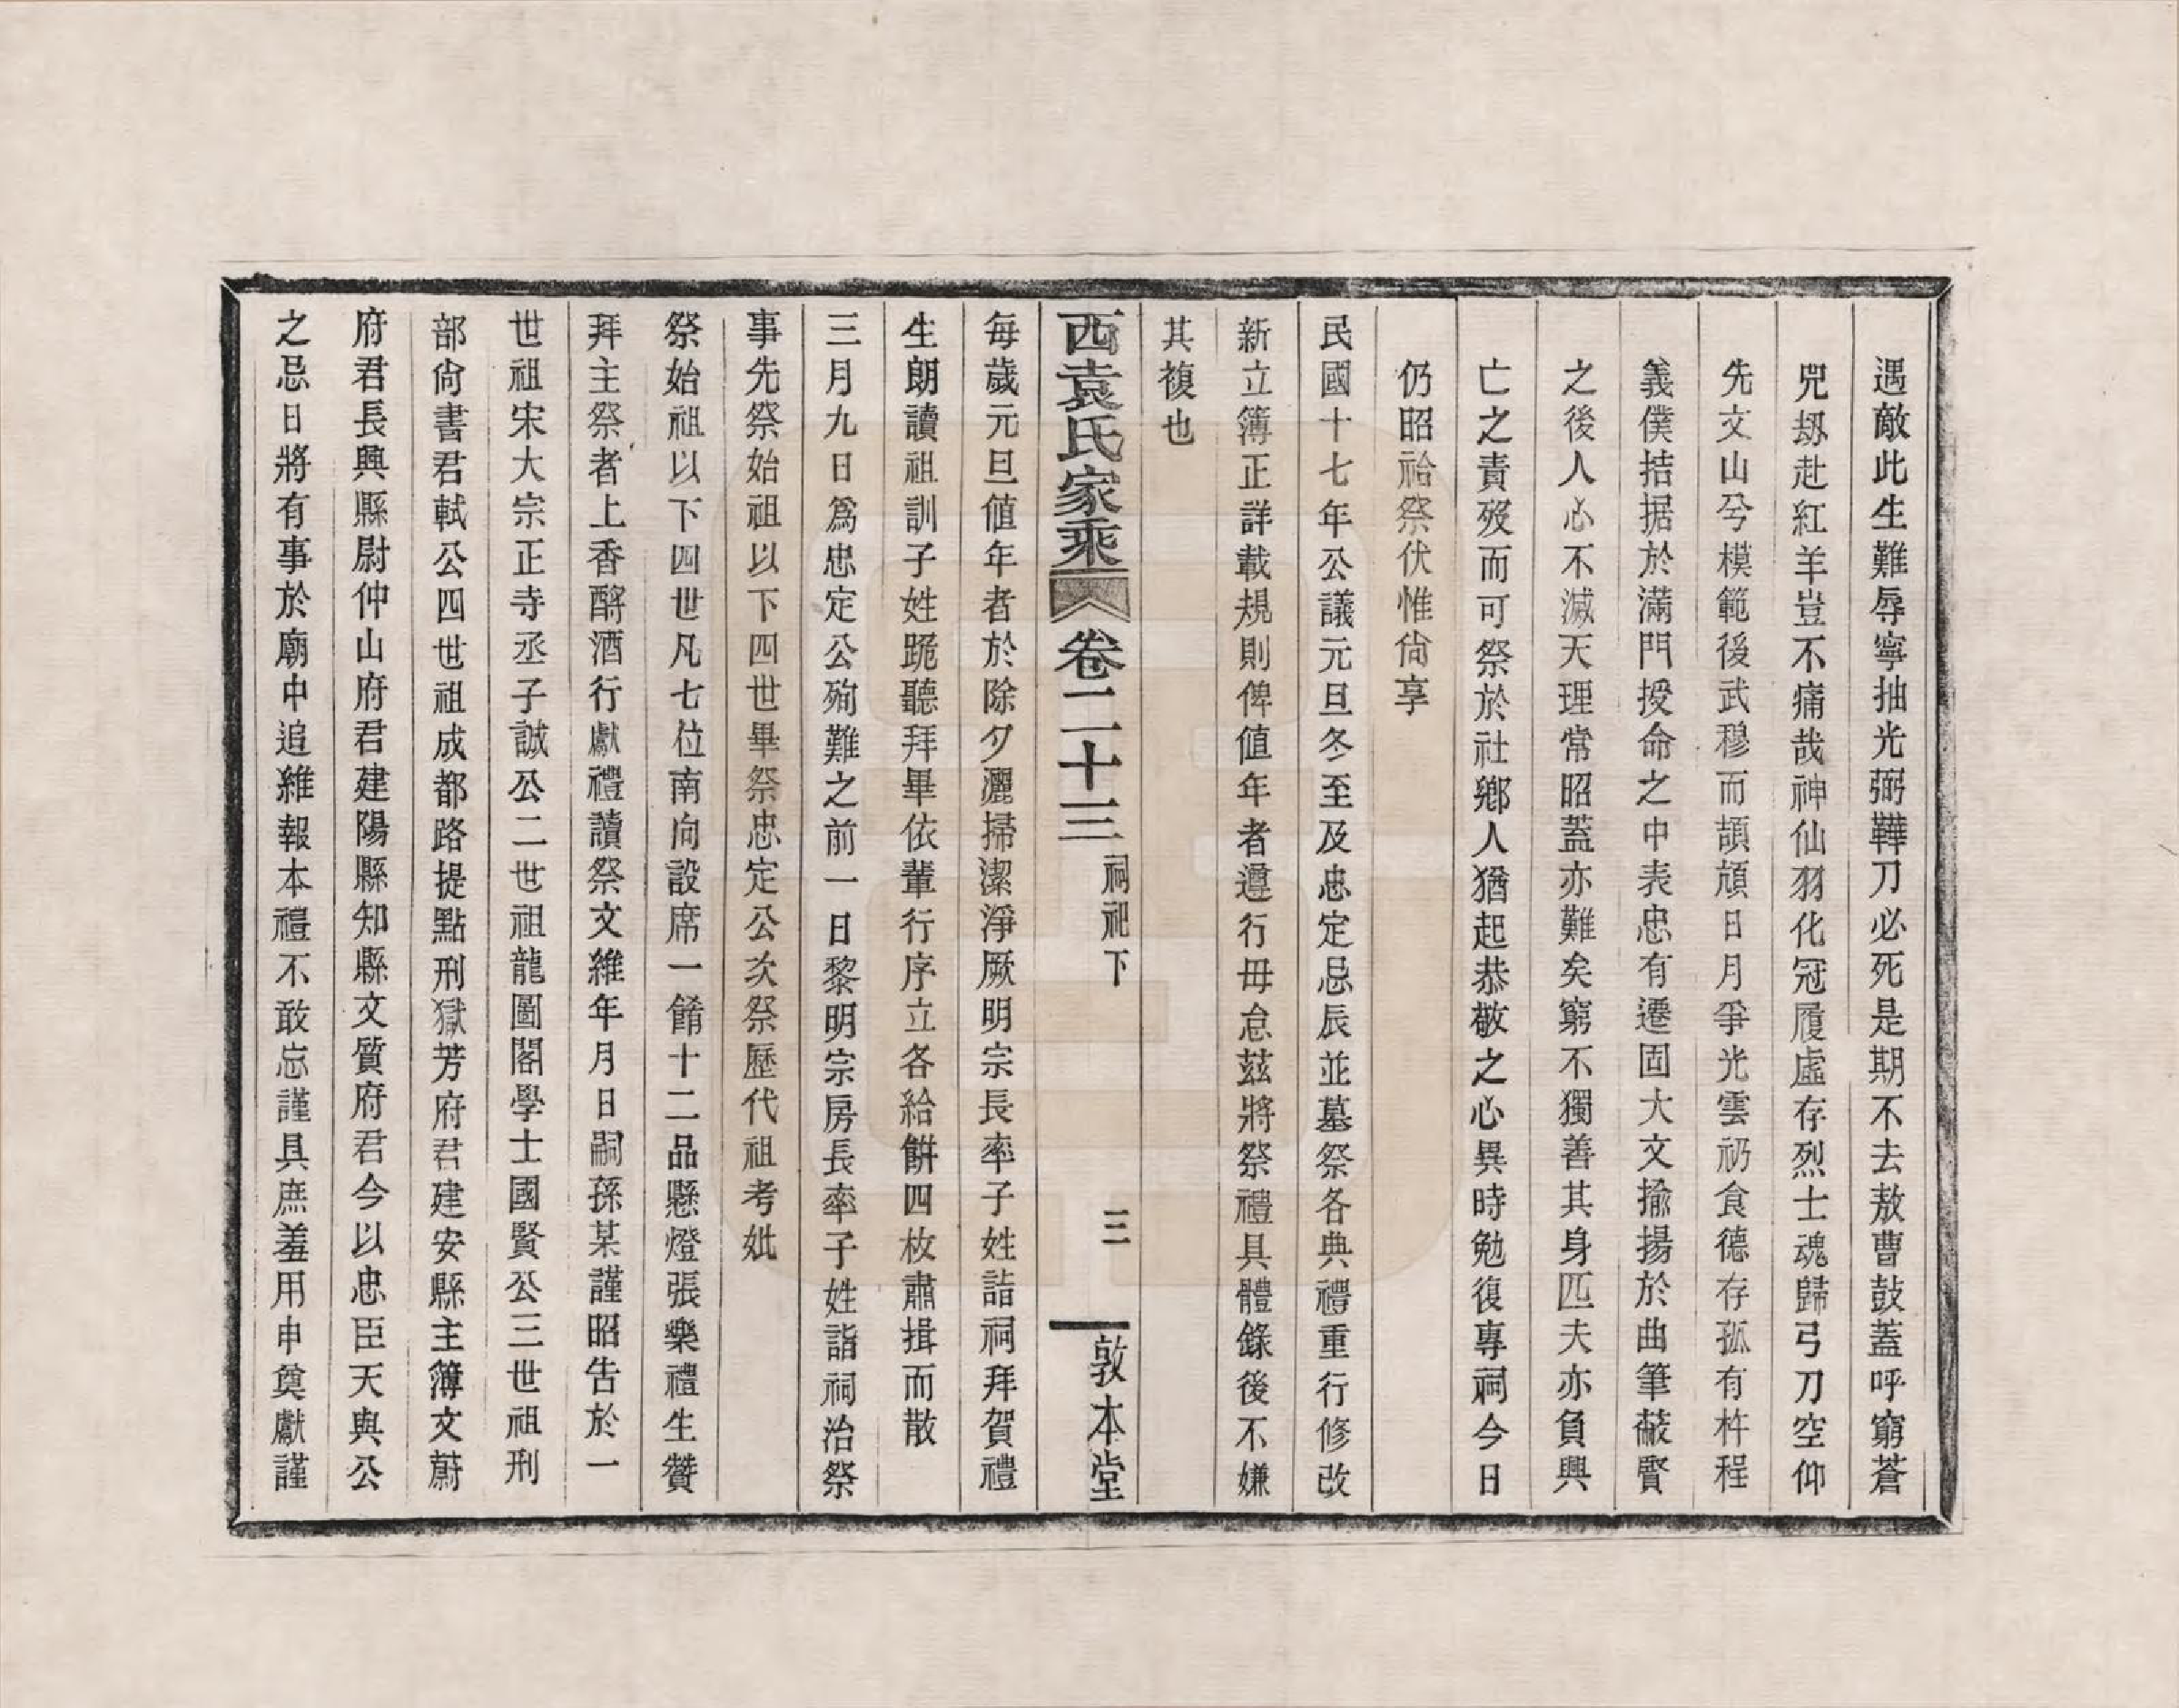 遇敵此生難辱寧抽光弼鞾刀必死是期不去敖曹鼓蓋呼窮蒼
兕刼赴紅羊豈不痛哉神仙羽化冠履虛存烈士魂歸弓刀空仰
先文山兮模範後武穆而頡頏日月爭光雲礽食德存孤有杵程
義僕拮据於滿門授命之中表忠有遷固大文揄揚於曲筆蔽賢
之後人心不滅天理常昭蓋亦難矣窮不獨善其身匹夫亦負興
亡之責歿而可祭於社鄉人猶起恭敬之心異時勉復專祠今日
仍昭祫祭伏惟尙享
民國十七年公議元旦冬至及忠定忌辰並墓祭各典禮重行修改
新立簿正詳載規則俾值年者遵行毋怠茲將祭禮具體錄後不嫌
其複也
西袁氏家乘 卷二十三 祠祀下 三 敦本堂
每歲元旦値年者於除夕灑掃潔淨厥明宗長率子姓詣祠拜賀禮
生朗讀祖訓子姓跪聽拜畢依輩行序立各給餠四枚肅揖而散
三月九日爲忠定公殉難之前一日黎明宗房長率子姓詣祠治祭
事先祭始祖以下四世畢祭忠定公次祭歷代祖考妣
祭始祖以下四世凡七位南向設席一餚十二品懸燈張樂禮生贊
拜主祭者上香酹酒行獻禮讀祭文維年月日嗣孫某謹昭告於一
世祖宋大宗正寺丞子誠公二世祖龍圖閣學士國賢公三世祖刑
部尙書君軾公四世祖成都路提點刑獄芳府君建安縣主簿文蔚
府君長興縣尉仲山府君建陽縣知縣文質府君今以忠臣天與公
之忌日將有事於廟中追維報本禮不敢忘謹具庶羞用申奠獻謹